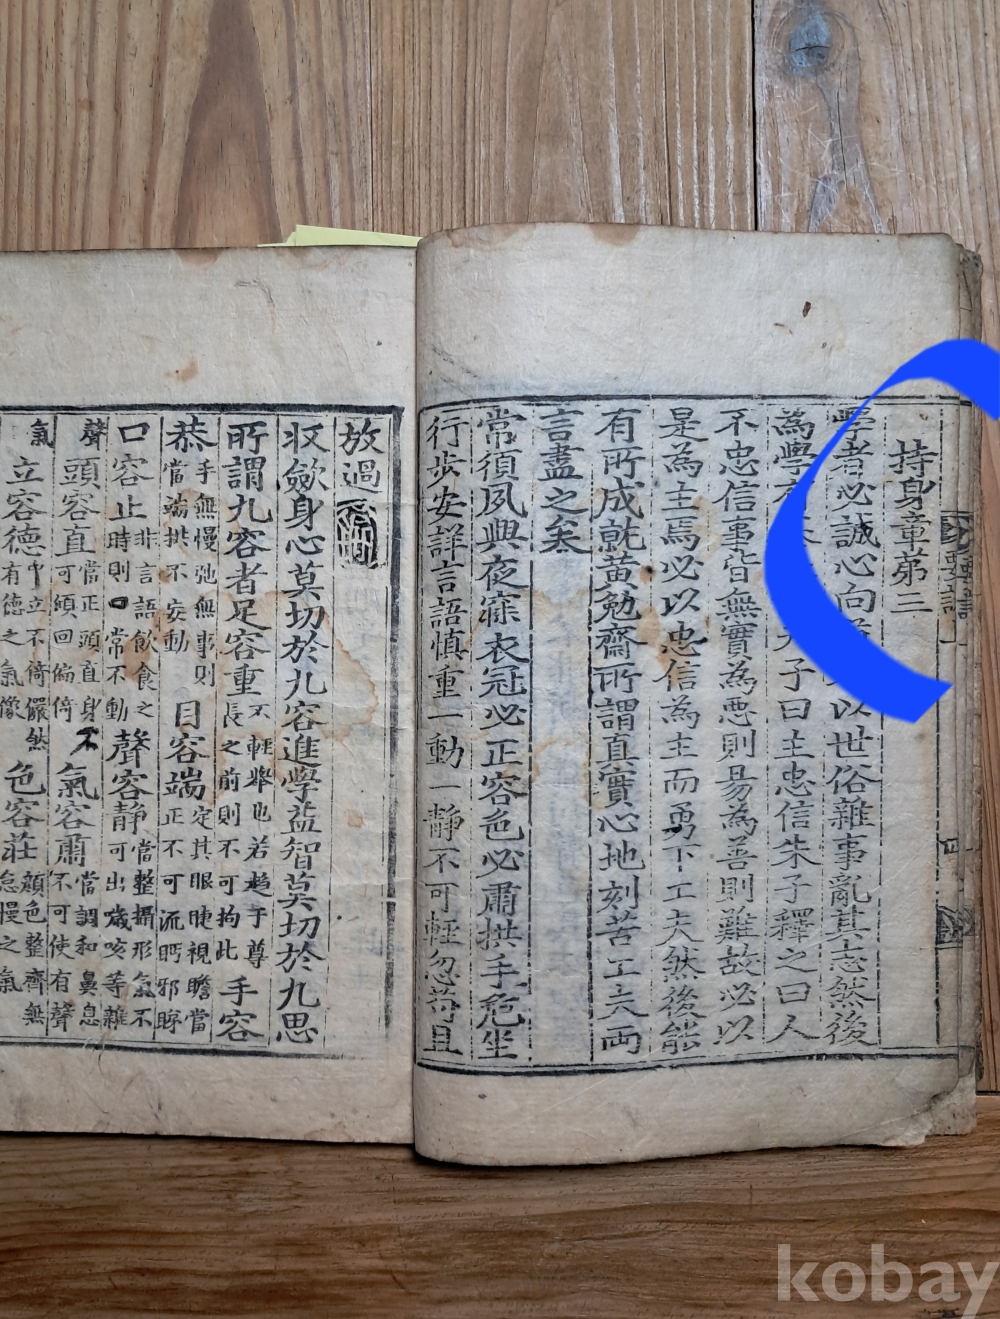 要訣
四
持身章苐三
學者必誠心向以世俗雜事亂其志然後
為學子曰主忠信朱子釋之曰人
不忠信事皆無實為悪則易為善則難故必以
是為主焉必以忠信為主而勇下工夫然後能
有所成就黃勉齋所謂真實心地刻苦工夫両
言盡之矣
常須夙興夜寐衣冠必正容色必肅拱手危坐
行步安詳言語慎重一動一靜不可輕忽苟且
放過
収斂身心莫切於九容進學益智莫切於九思
所謂九容者足容重不輕舉也若趍于尊長之前則不可拘此手容
恭手無慢弛無事則當端拱不妄動目容端定其眼睫視瞻當正不可流眄邪睇
口容止非言語飲食之時則口常不動聲容静當整攝形氣不可出噦咳等雜
聲頭容直當正頭直身不可傾回偏倚氣容肅當調和鼻息不可使有聲
氣立容德中立不倚儼然有德之氣像色容荘顏色整齊無怠慢之氣
kobay